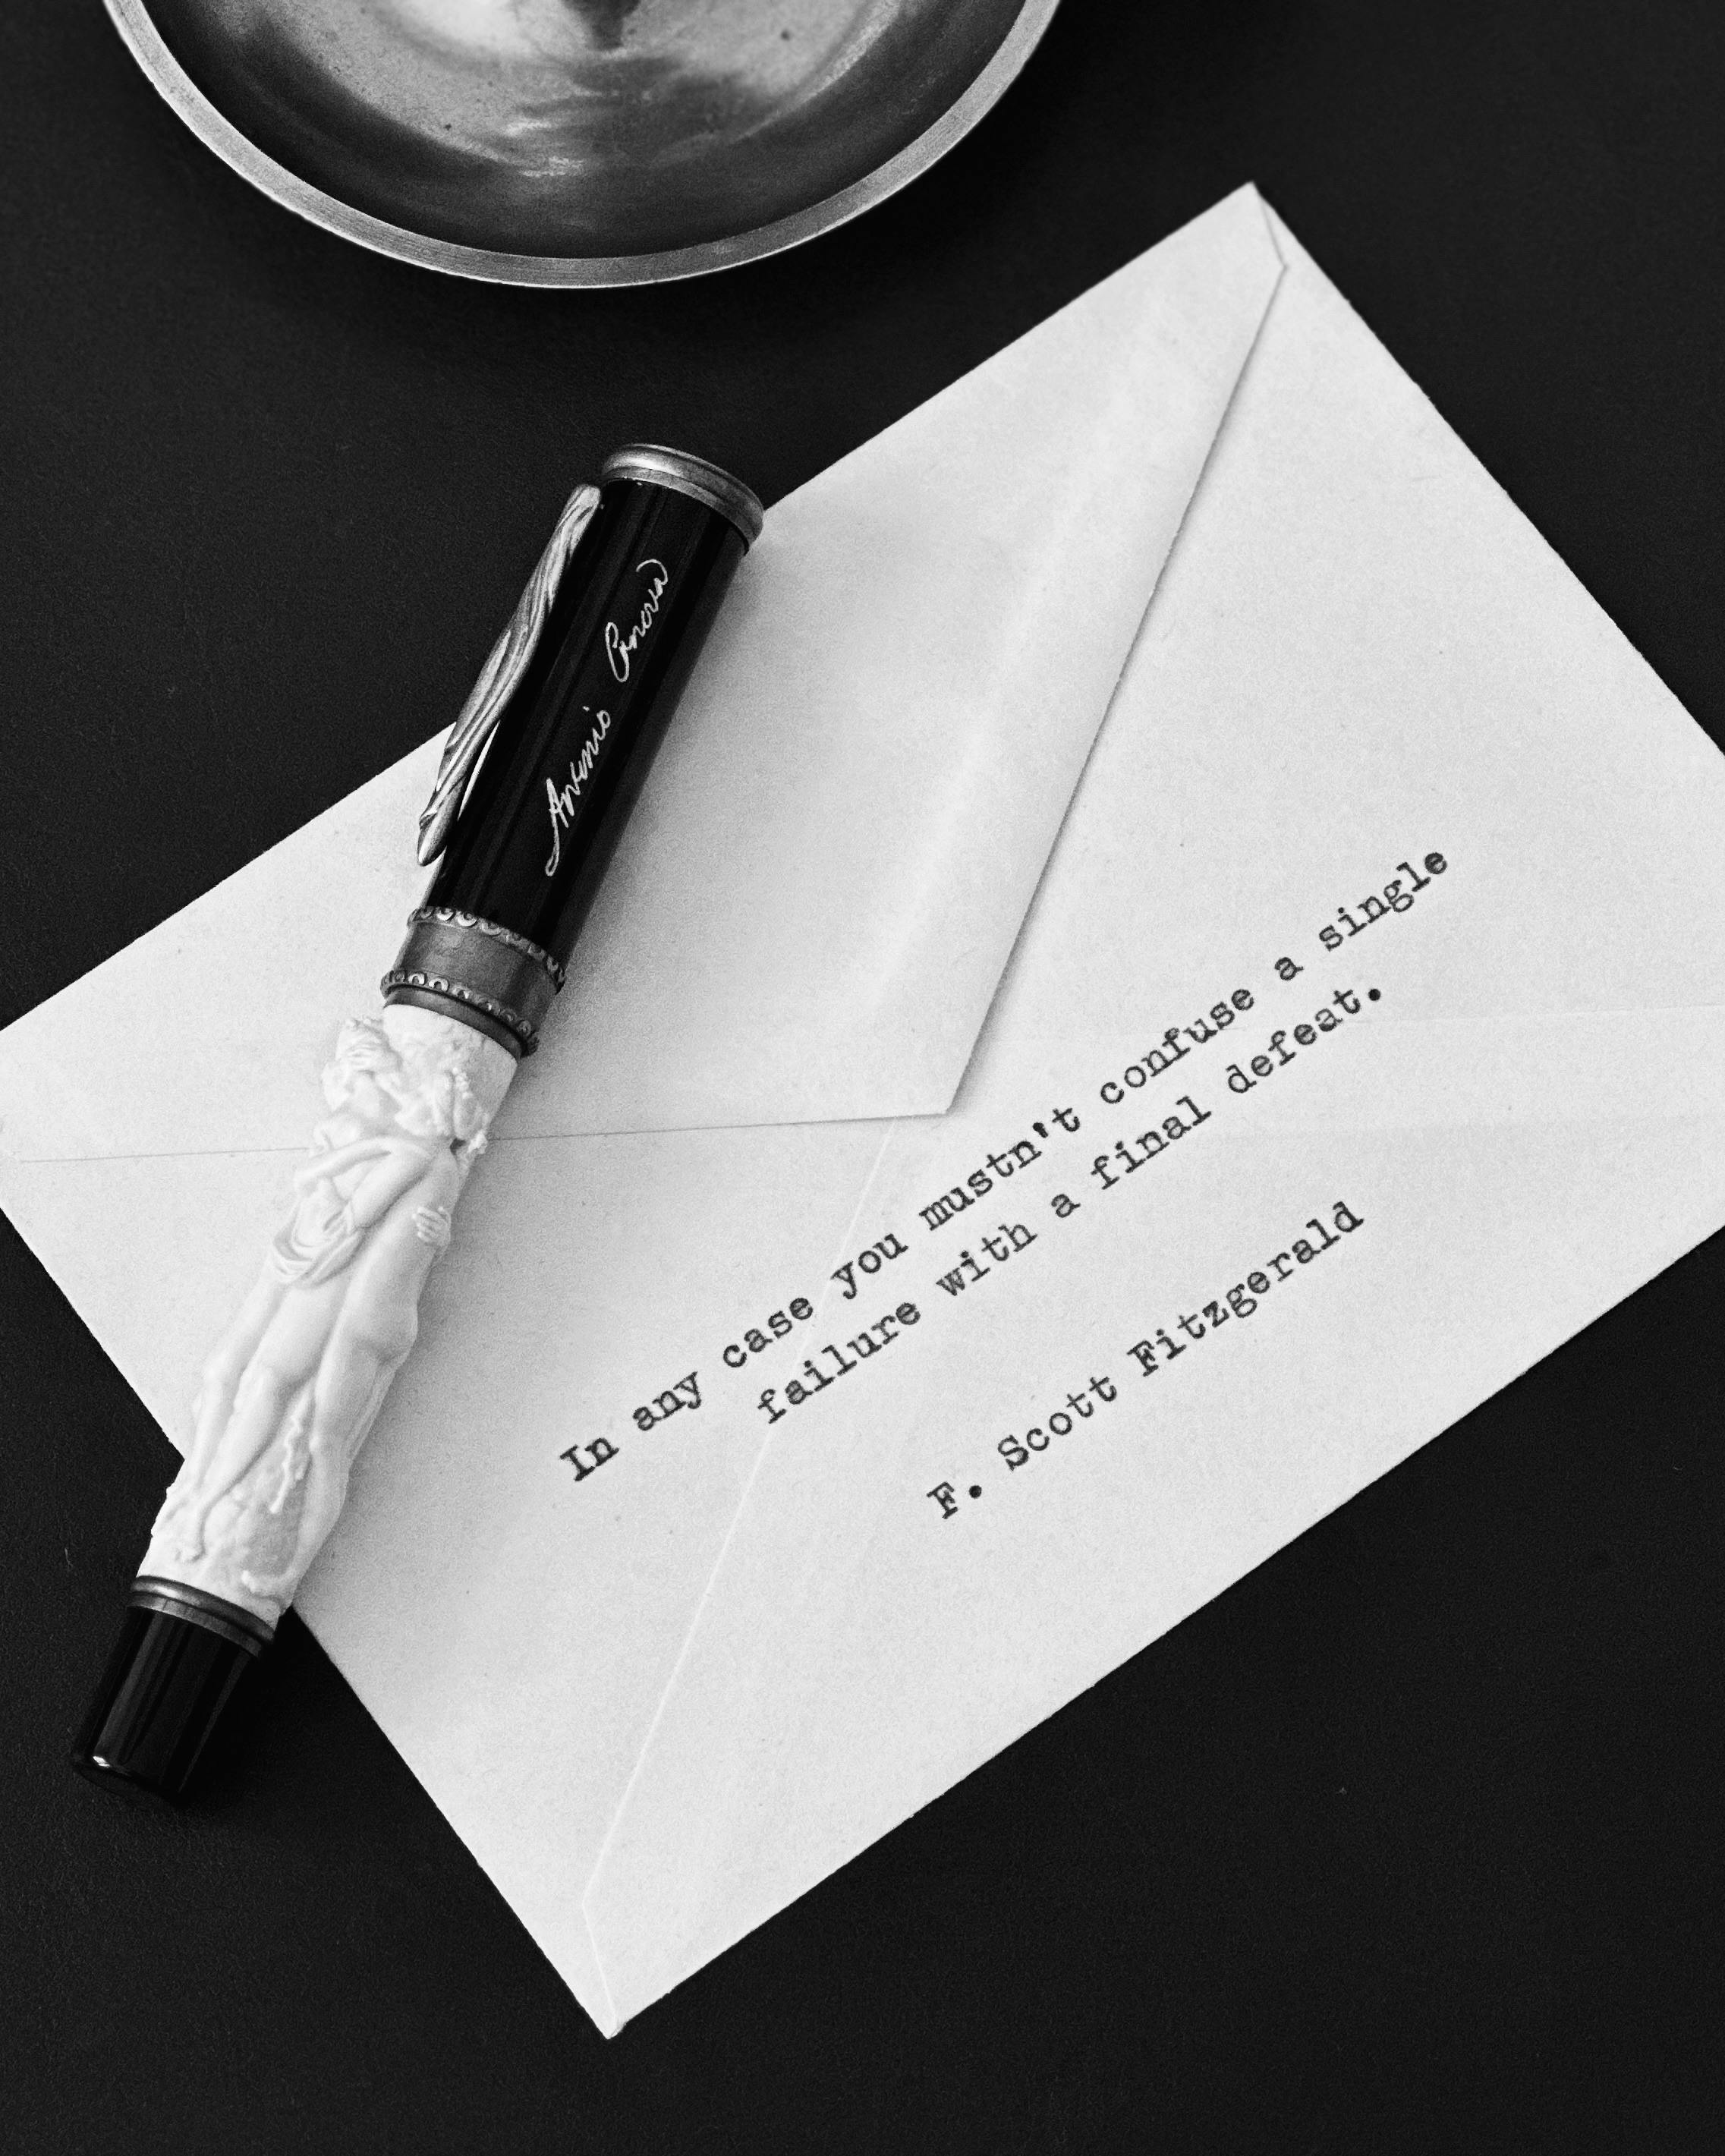 Antonio Canova
In any case you mustn't confuse a single
failure with a final defeat.
F. Scott Fitzgerald